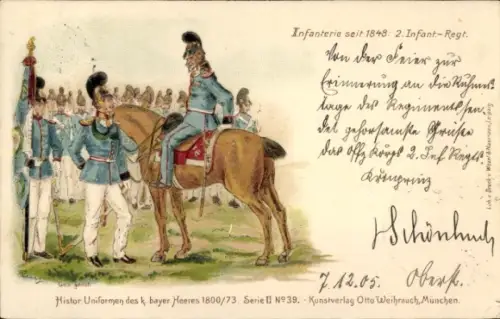 Infanterie seit 1848. 2. Infant.-Regt.
Von der Feier zur
Erinnerung an die Ruhmes
tage des Regiments sen
det gehorsamste Grüße
das Offz Korps 2. Inf Regts
Kronprinz
Schönhueb
7.12.05. Oberst.
Histor Uniformen des k. bayer Heeres 1800/73. Serie II No 39. - Kunstverlag Otto Weihrauch, München.